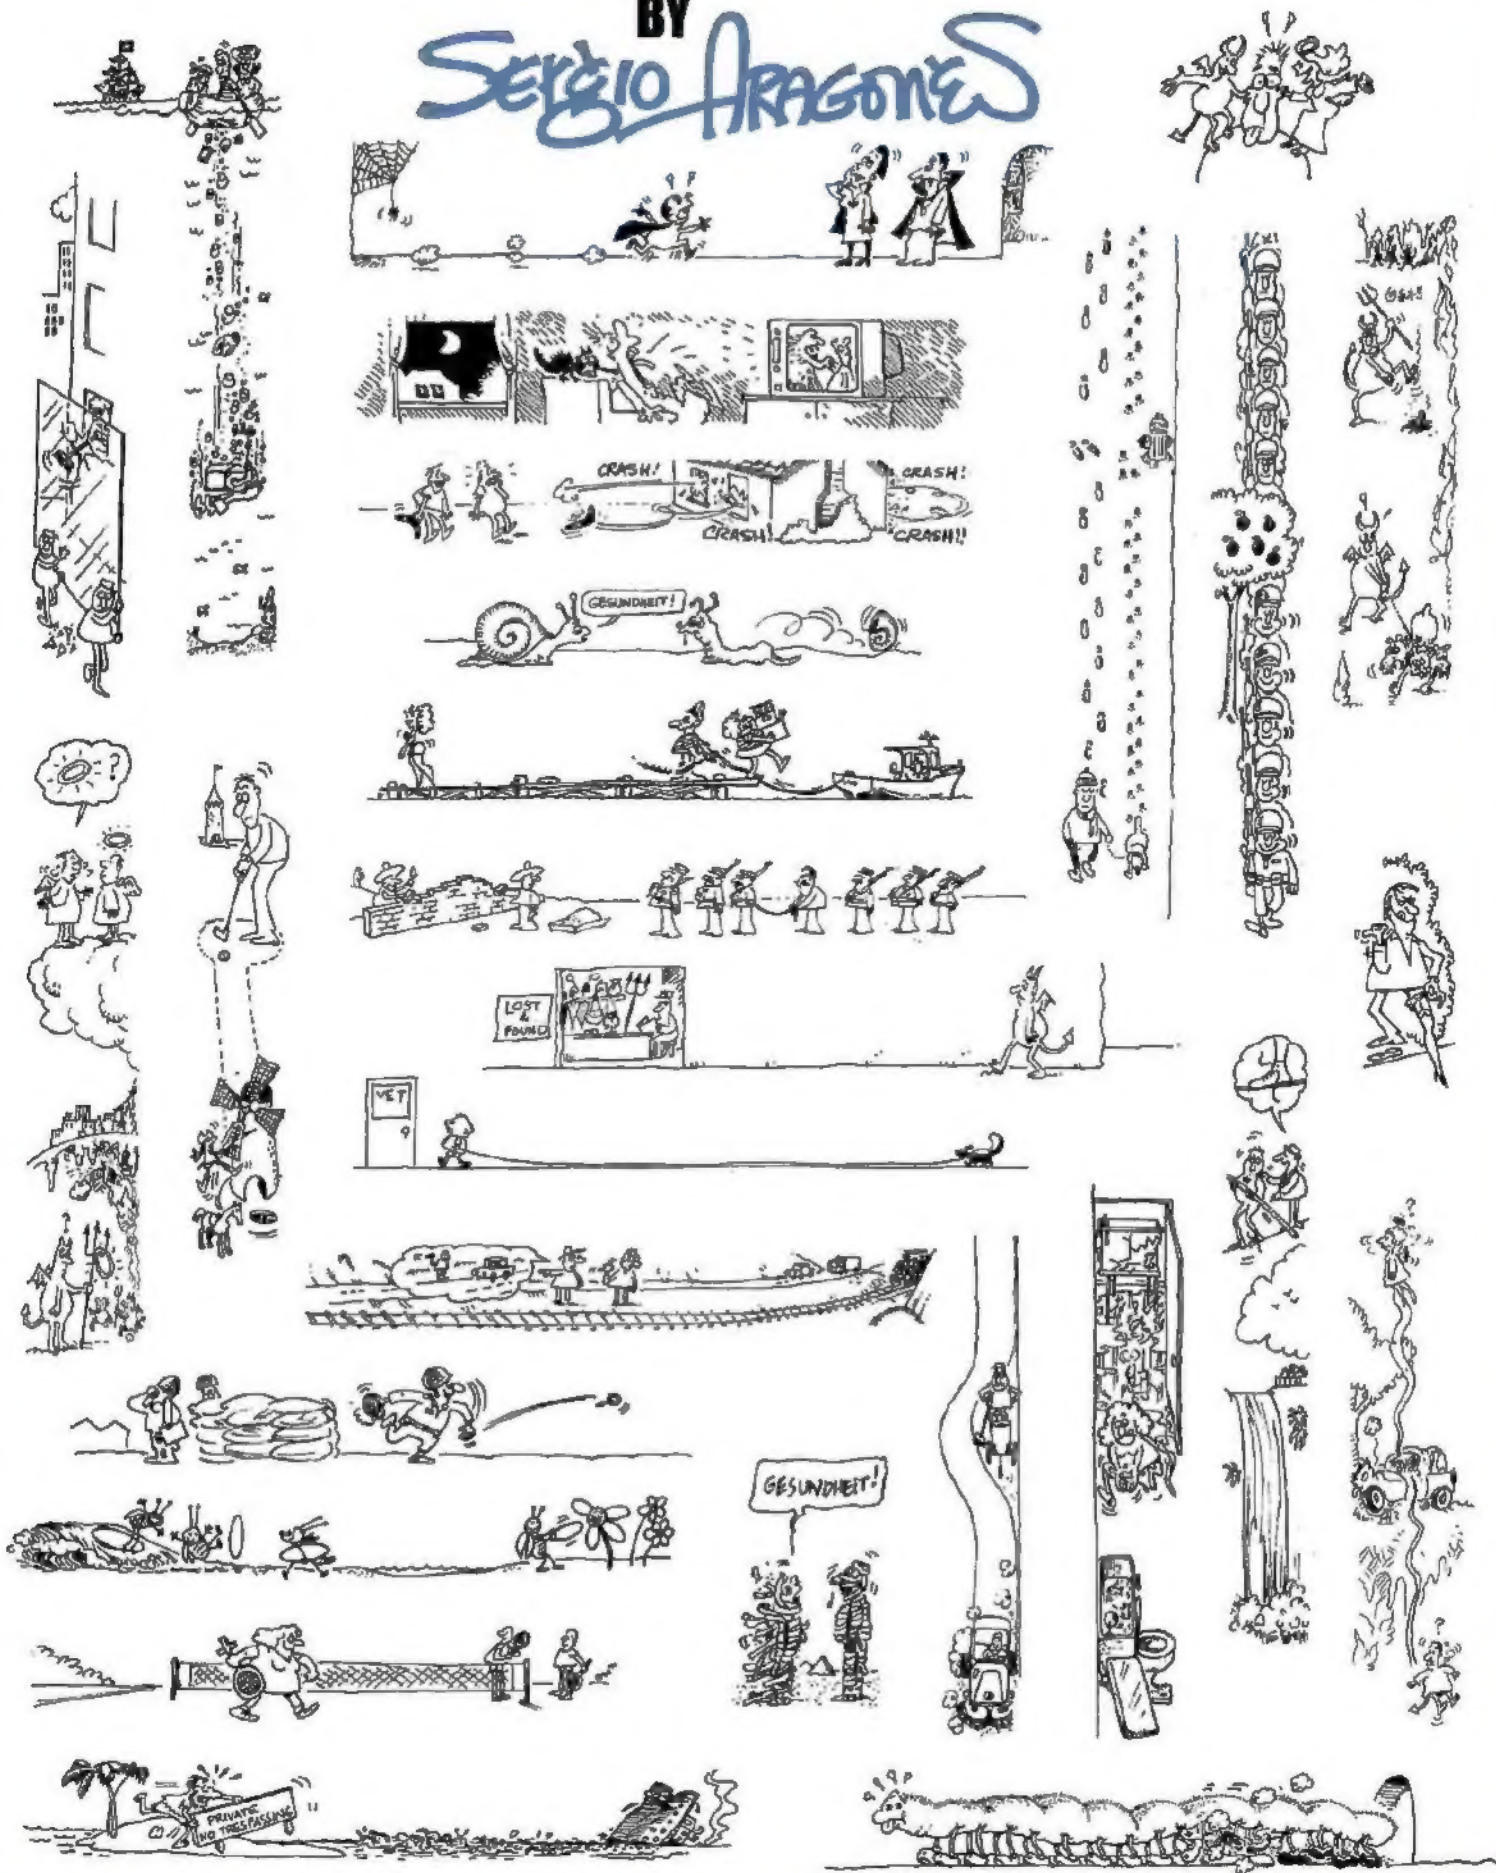 BY
SERGIO ARAGONES
CRASH!
CRASH!
CRASH!
CRASH!!
GESUNDHEIT!
?
LOST
&
FOUND
VET
GESUNDHEIT!
PRIVATE
NO TRESPASSING